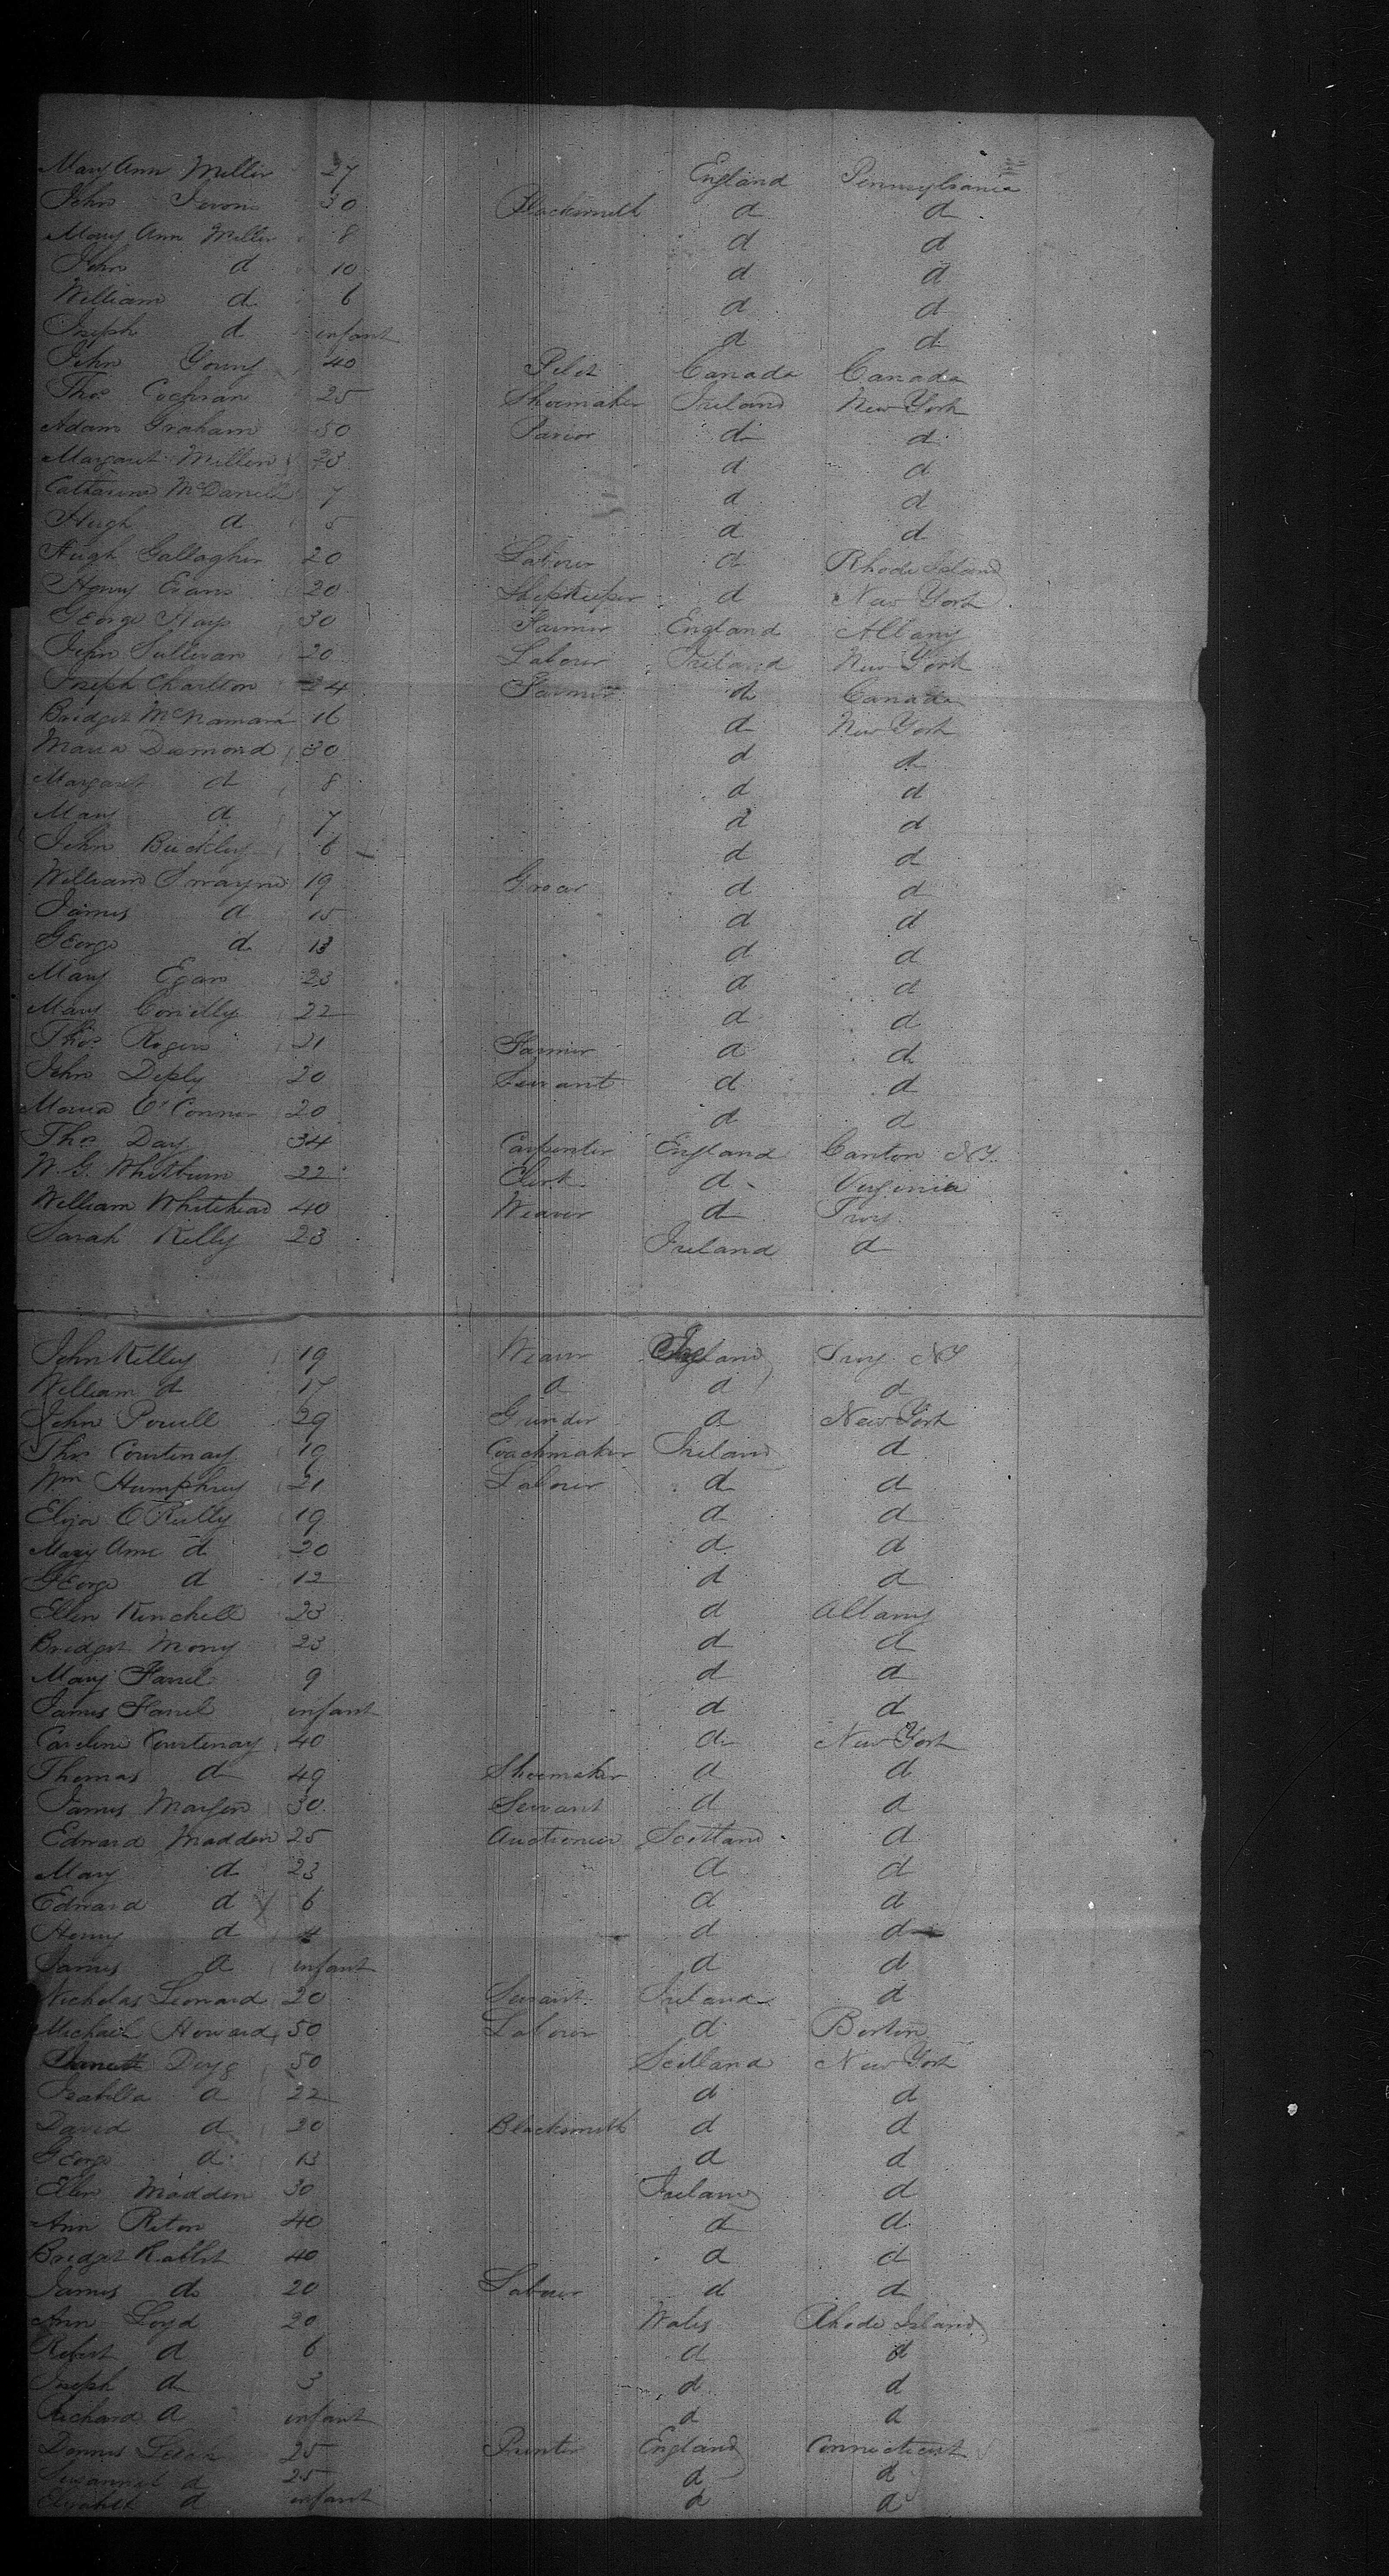 Mary Ann Miller 27 England Pennsylvania
John 30 Blacksmith d d
Mary Ann Miller 8 d d
John d 10 d d
William d 6 d d
Joseph d infant d d
John Young 40 Pilot Canada Canada
Thos Cochran 25 Shoemaker Ireland New York
Adam Graham 50 d d
Margaret Miller 23 d d
Catharine McDaniel 7 d d
Hugh d 5 d d
Hugh Gallagher 20 Labourer d Rhode Island
Henry Evans 20 Shopkeeper d New York
George Hays 30 Farmer England Albany
John Sullivan 20 Labourer Ireland New York
Joseph Charlton 24 Farmer d Canada
Bridget McNamara 16 d New York
Maria Desmond 30 d d
Margaret d 8 d d
Mary d 7 d d
John Buckley 6 d d
William Swayne 19 Grocer d d
James d 15 d d
George d 13 d d
Mary Egan 23 d d
Mary Conelly 22 d d
Thos Rogers 21 Farmer d d
John Deply 20 Servant d d
Maria O'Connor 20 d d
Thos Day 34 Carpenter England Canton NY
W. G. Whitburn 22 Clerk d Virginia
William Whitehead 40 Weaver d Troy
Sarah Kelly 23 Ireland d
John Kelley 19 Weaver England Troy NY
William d 17 d d d
John Powell 29 Grinder d New York
Thos Courtenay 19 Coachmaker Ireland d
Wm Humphrey 21 Labourer d d
Eliza O'Reilly 19 d d
Mary Ann d 20 d d
George d 12 d d
Ellen Kinchell 23 d Albany
Bridget Mony 23 d d
Mary Farrel 9 d d
James Farrel infant d d
Caroline Courtenay 40 d New York
Thomas d 49 Shoemaker d d
James 30 Servant d d
Edward Madden 25 Auctioneer Scotland d
Mary d 23 d d
Edward d 6 d d
Henry d 4 d d
James d infant d d
Nicholas Leonard 20 Servant Ireland d
Michael Howard 50 Labourer d Boston
50 Scotland New York
Isabella d 22 d d
David d 20 Blacksmith d d
George d 13 d d
Ellen Madden 30 Ireland d
Ann Riton 40 d d
Bridget Rabbit 40 d d
James d 20 Labourer d d
Ann Loyd 20 Wales Rhode Island
Robert d 6 d d
Joseph d 3 d d
Richard d infant d d
Dennis Leech 25 Printer England Connecticut
Susannah d 25 d d
Elizabeth d infant d d